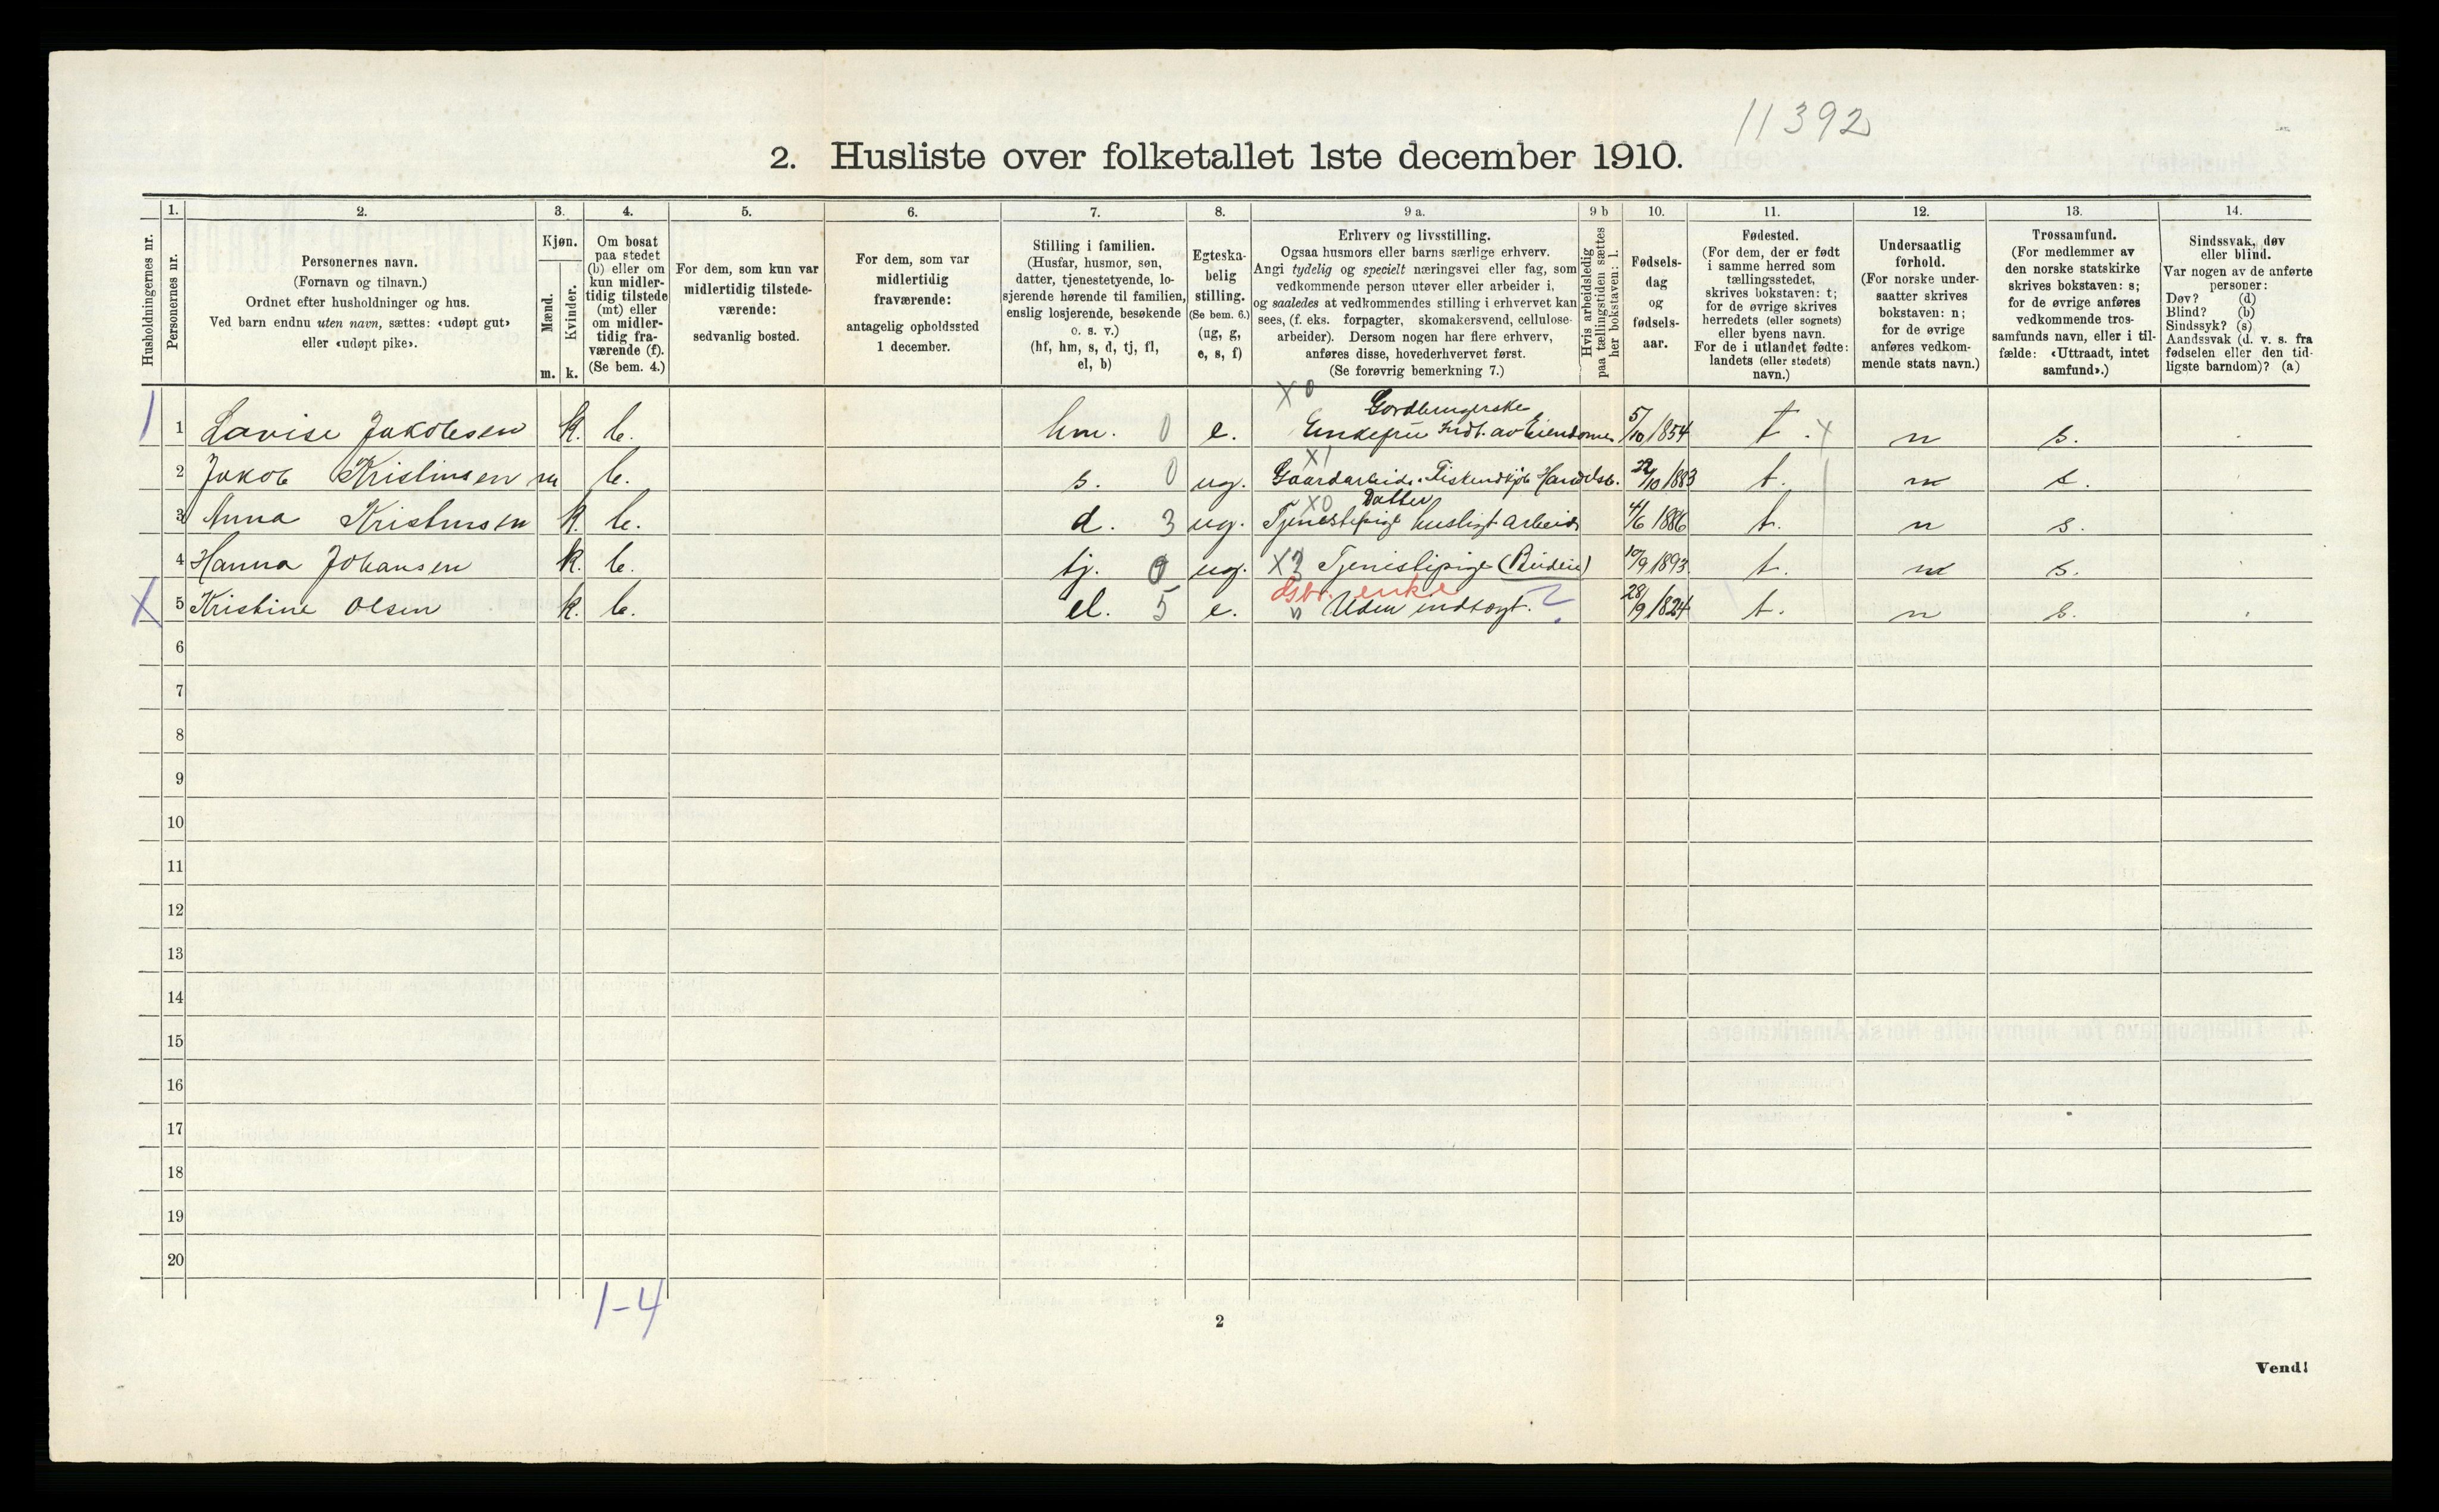 11392
2. Husliste over folketallet 1ste december 1910.
Husholdningernes nr.
1.
Personernes nr.
2.
Personernes navn.
(Fornavn og tilnavn.)
Ordnet efter husholdninger og hus.
Ved barn endnu uten navn, sættes: «udøpt gut»
eller «udøpt pike».
3.
Kjøn.
Mænd.
Kvinder.
m. k.
4.
Om bosat
paa stedet
(b) eller om
kun midler-
tidig tilstede
(mt) eller
om midler-
tidig fra-
værende (f).
(Se bem. 4.)
5.
For dem, som kun var
midlertidig tilstede-
værende:
sedvanlig bosted.
6.
For dem, som var
midlertidig
fraværende:
antagelig opholdssted
1 december.
7.
Stilling i familien.
(Husfar, husmor, søn,
datter, tjenestetyende, lo-
sjerende hørende til familien,
enslig losjerende, besøkende
o. s. v.)
(hf, hm, s, d, tj, fl,
el, b)
8.
Egteska-
belig
stilling.
(Se bem. 6.)
(ug, g,
e, s, f)
9 a.
Erhverv og livsstilling.
Ogsaa husmors eller barns særlige erhverv.
Angi tydelig og specielt næringsvei eller fag, som
vedkommende person utøver eller arbeider i,
og saaledes at vedkommendes stilling i erhvervet kan
sees, (f. eks. forpagter, skomakersvend, cellulose-
arbeider). Dersom nogen har flere erhverv,
anføres disse, hovederhvervet først.
(Se forøvrig bemerkning 7.)
9 b
Hvis arbeidsledig
paa tællingstiden sættes
her bokstaven: l.
10.
Fødsels-
dag
og
fødsels-
aar.
11.
Fødested.
(For dem, der er født
i samme herred som
tællingsstedet,
skrives bokstaven: t;
for de øvrige skrives
herredets (eller sognets)
eller byens navn.
For de i utlandet fødte:
landets (eller stedets)
navn.)
12.
Undersaatlig
forhold.
(For norske under-
saatter skrives
bokstaven: n;
for de øvrige
anføres vedkom-
mende stats navn.)
13.
Trossamfund.
(For medlemmer av
den norske statskirke
skrives bokstaven: s;
for de øvrige anføres
vedkommende tros-
samfunds navn, eller i til-
fælde: «Uttraadt, intet
samfund».)
14.
Sindssvak, døv
eller blind.
Var nogen av de anførte
personer:
Døv? (d)
Blind? (b)
Sindssyk? (s)
Aandssvak (d. v. s. fra
fødselen eller den tid-
ligste barndom)? (a)
X 0 Gordbrugerske
1 Lovise Jakobsen k. b. hm. 0 e. Enkefru Indt. av Eiendomen 5/10 1854 t. x n s.
X1
2 Jakob Kristinsen m b. s. 0 ug. Gaardarbeide. Handelsb. 22/10 1883 t. n s.
X0 Datter
3 Anna Kristinsen k. b. d. 3 ug. Tjenestepige husligt arbeide 4/6 1886 t. n s.
4 Hanna Johansen k. b. tj. 0 ug. X3 Tjenestepige (Budeie) 10/9 1893. t. n s.
enke
X 5 Kristine Olsen k. b. el. 5 e. Uden indtægt. ? 28/9 1824 t. n s.
6
7
8
9
10
11
12
13
14
15
16
17
18
19
20
1-4
2
Vend!